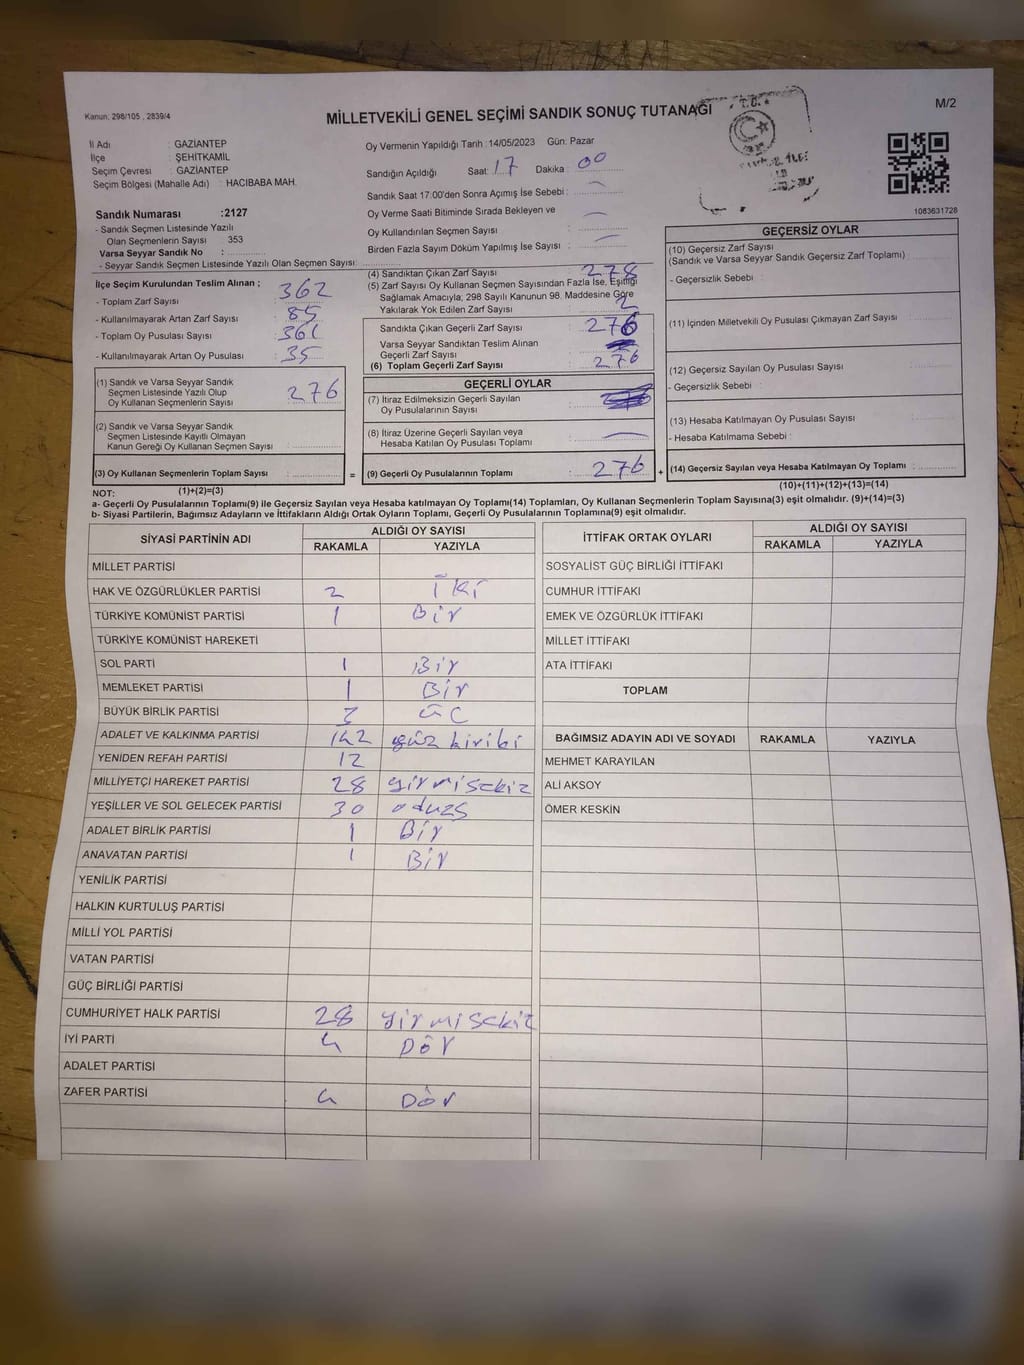 Kanun: 298/105 , 2839/4
MİLLETVEKİLİ GENEL SEÇİMİ SANDIK SONUÇ TUTANAĞI
M/2
T.C.
İl Adı : GAZİANTEP
İlçe : ŞEHİTKAMİL
Seçim Çevresi : GAZİANTEP
Seçim Bölgesi (Mahalle Adı) : HACIBABA MAH.
Sandık Numarası :2127
- Sandık Seçmen Listesinde Yazılı
Olan Seçmenlerin Sayısı 353
Varsa Seyyar Sandık No :
- Seyyar Sandık Seçmen Listesinde Yazılı Olan Seçmen Sayısı:
Oy Vermenin Yapıldığı Tarih :14/05/2023 Gün: Pazar
Sandığın Açıldığı Saat: 17 Dakika : 00
Sandık Saat 17:00'den Sonra Açımış İse Sebebi :
Oy Verme Saati Bitiminde Sırada Bekleyen ve
Oy Kullandırılan Seçmen Sayısı :
Birden Fazla Sayım Döküm Yapılmış İse Sayısı :
1083631728
İlçe Seçim Kurulundan Teslim Alınan ;
- Toplam Zarf Sayısı : 362
- Kullanılmayarak Artan Zarf Sayısı : 85
- Toplam Oy Pusulası Sayısı : 361
- Kullanılmayarak Artan Oy Pusulası : 35
(1) Sandık ve Varsa Seyyar Sandık
Seçmen Listesinde Yazılı Olup
Oy Kullanan Seçmenlerin Sayısı : 276
(2) Sandık ve Varsa Seyyar Sandık
Seçmen Listesinde Kayıtlı Olmayan
Kanun Gereği Oy Kullanan Seçmen Sayısı :
(3) Oy Kullanan Seçmenlerin Toplam Sayısı :
(4) Sandıktan Çıkan Zarf Sayısı : 278
(5) Zarf Sayısı Oy Kullanan Seçmen Sayısından Fazla İse, Eşitliği
Sağlamak Amacıyla; 298 Sayılı Kanunun 98. Maddesine Göre
Yakılarak Yok Edilen Zarf Sayısı : 2
Sandıkta Çıkan Geçerli Zarf Sayısı : 276
Varsa Seyyar Sandıktan Teslim Alınan
Geçerli Zarf Sayısı :
(6) Toplam Geçerli Zarf Sayısı : 276
GEÇERLİ OYLAR
(7) İtiraz Edilmeksizin Geçerli Sayılan
Oy Pusulalarının Sayısı :
(8) İtiraz Üzerine Geçerli Sayılan veya
Hesaba Katılan Oy Pusulası Toplamı :
= (9) Geçerli Oy Pusulalarının Toplamı : 276
GEÇERSİZ OYLAR
(10) Geçersiz Zarf Sayısı :
(Sandık ve Varsa Seyyar Sandık Geçersiz Zarf Toplamı)
- Geçersizlik Sebebi :
(11) İçinden Milletvekili Oy Pusulası Çıkmayan Zarf Sayısı :
(12) Geçersiz Sayılan Oy Pusulası Sayısı :
- Geçersizlik Sebebi :
(13) Hesaba Katılmayan Oy Pusulası Sayısı :
- Hesaba Katılmama Sebebi :
+ (14) Geçersiz Sayılan veya Hesaba Katılmayan Oy Toplamı :
NOT: (1)+(2)=(3)
(10)+(11)+(12)+(13)=(14)
a- Geçerli Oy Pusulalarının Toplamı(9) ile Geçersiz Sayılan veya Hesaba katılmayan Oy Toplamı(14) Toplamları, Oy Kullanan Seçmenlerin Toplam Sayısına(3) eşit olmalıdır. (9)+(14)=(3)
b- Siyasi Partilerin, Bağımsız Adayların ve İttifakların Aldığı Ortak Oyların Toplamı, Geçerli Oy Pusulalarının Toplamına(9) eşit olmalıdır.
SİYASİ PARTİNİN ADI ALDIĞI OY SAYISI
RAKAMLA YAZIYLA
MİLLET PARTİSİ
HAK VE ÖZGÜRLÜKLER PARTİSİ 2 iki
TÜRKİYE KOMÜNİST PARTİSİ 1 Bir
TÜRKİYE KOMÜNİST HAREKETİ
SOL PARTİ 1 Bir
MEMLEKET PARTİSİ 1 Bir
BÜYÜK BİRLİK PARTİSİ 3 üç
ADALET VE KALKINMA PARTİSİ 142
YENİDEN REFAH PARTİSİ 12
MİLLİYETÇİ HAREKET PARTİSİ 28 yirmisekiz
YEŞİLLER VE SOL GELECEK PARTİSİ 30
ADALET BİRLİK PARTİSİ 1 Bir
ANAVATAN PARTİSİ 1 Bir
YENİLİK PARTİSİ
HALKIN KURTULUŞ PARTİSİ
MİLLİ YOL PARTİSİ
VATAN PARTİSİ
GÜÇ BİRLİĞİ PARTİSİ
CUMHURİYET HALK PARTİSİ 28 yirmisekiz
İYİ PARTİ 4 DÖr
ADALET PARTİSİ
ZAFER PARTİSİ 4 DÖr
İTTİFAK ORTAK OYLARI ALDIĞI OY SAYISI
RAKAMLA YAZIYLA
SOSYALİST GÜÇ BİRLİĞİ İTTİFAKI
CUMHUR İTTİFAKI
EMEK VE ÖZGÜRLÜK İTTİFAKI
MİLLET İTTİFAKI
ATA İTTİFAKI
TOPLAM
BAĞIMSIZ ADAYIN ADI VE SOYADI RAKAMLA YAZIYLA
MEHMET KARAYILAN
ALİ AKSOY
ÖMER KESKİN